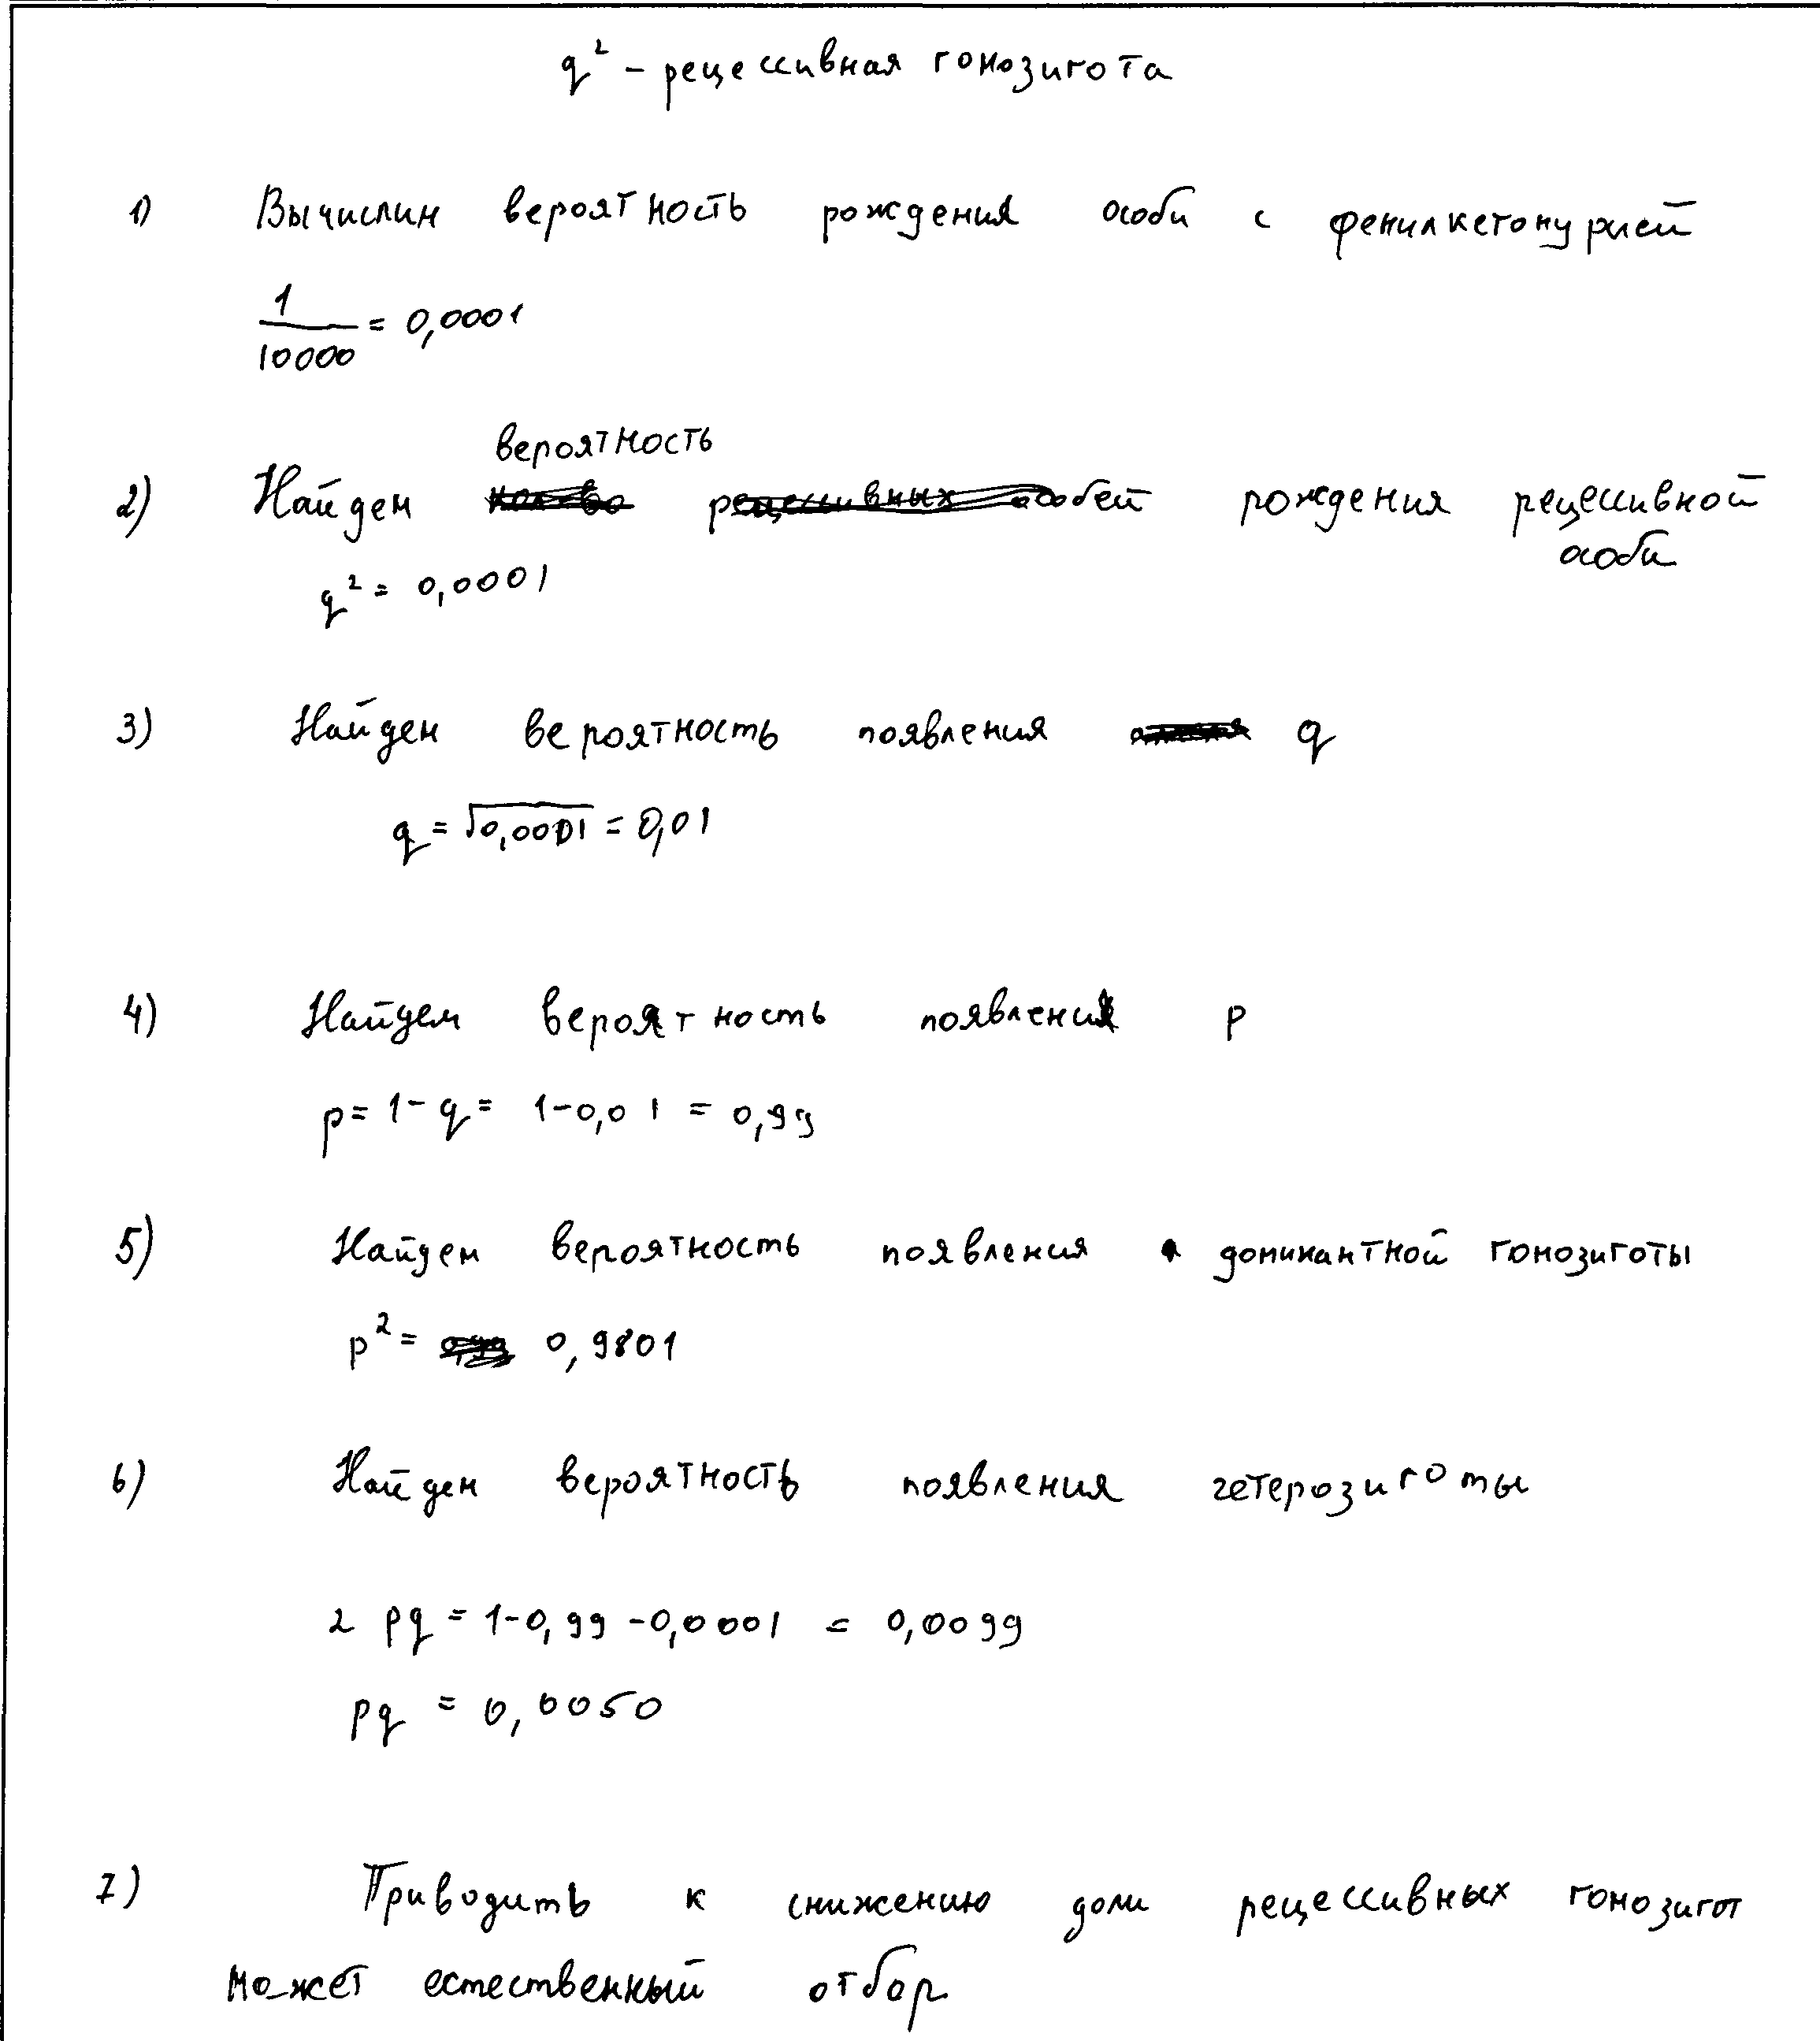 q² – рецессивная гомозигота
1) Вычислим вероятность рождения особи с фенилкетонурией
1/10000 = 0,0001
вероятность
2) Найдем кол-во рецессивных особей рождения рецессивной
особи
q² = 0,0001
3) Найдем вероятность появления q
q = √0,0001 = 0,01
4) Найдем вероятность появления p
p = 1 - q = 1 - 0,01 = 0,99
5) Найдем вероятность появления доминантной гомозиготы
p² = 0,9801
6) Найдем вероятность появления гетерозиготы
2 pq = 1 - 0,99 - 0,0001 = 0,0099
pq = 0,0050
7) Приводить к снижению доли рецессивных гомозигот
может естественный отбор